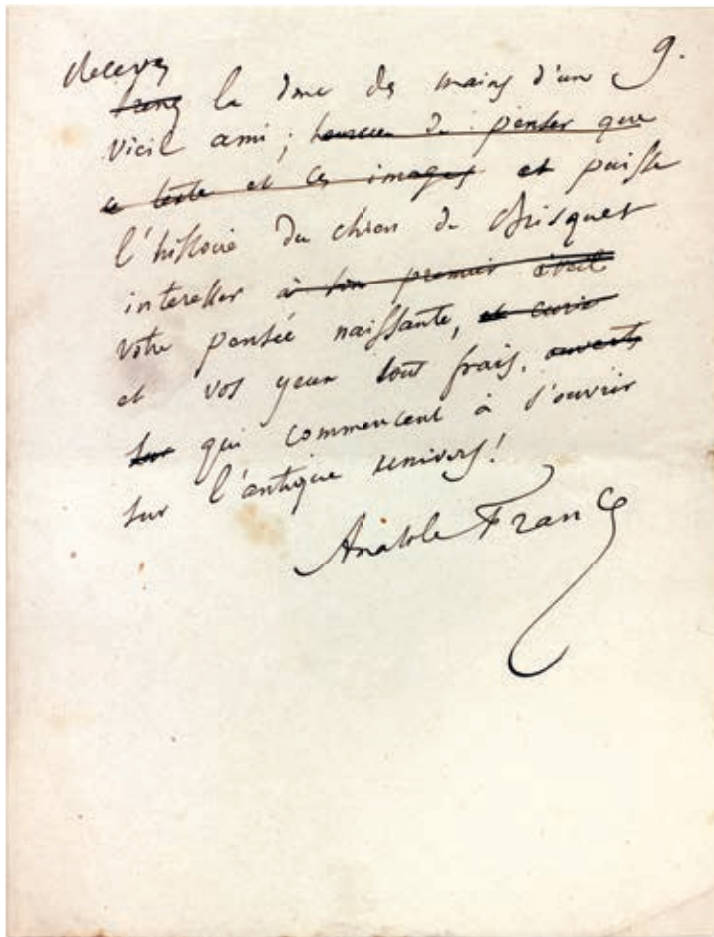 9.
Recevez
prenez le donc des mains d'un
vieil ami; heureux de penser que
ce texte et ces images et puisse
l'histoire du chien de Brisquet
interesser à son premier éveil
votre pensée naissante, et curie
et vos yeux tout frais, ouverts
sur qui commencent à s'ouvrir
sur l'antique univers!
Anatole France